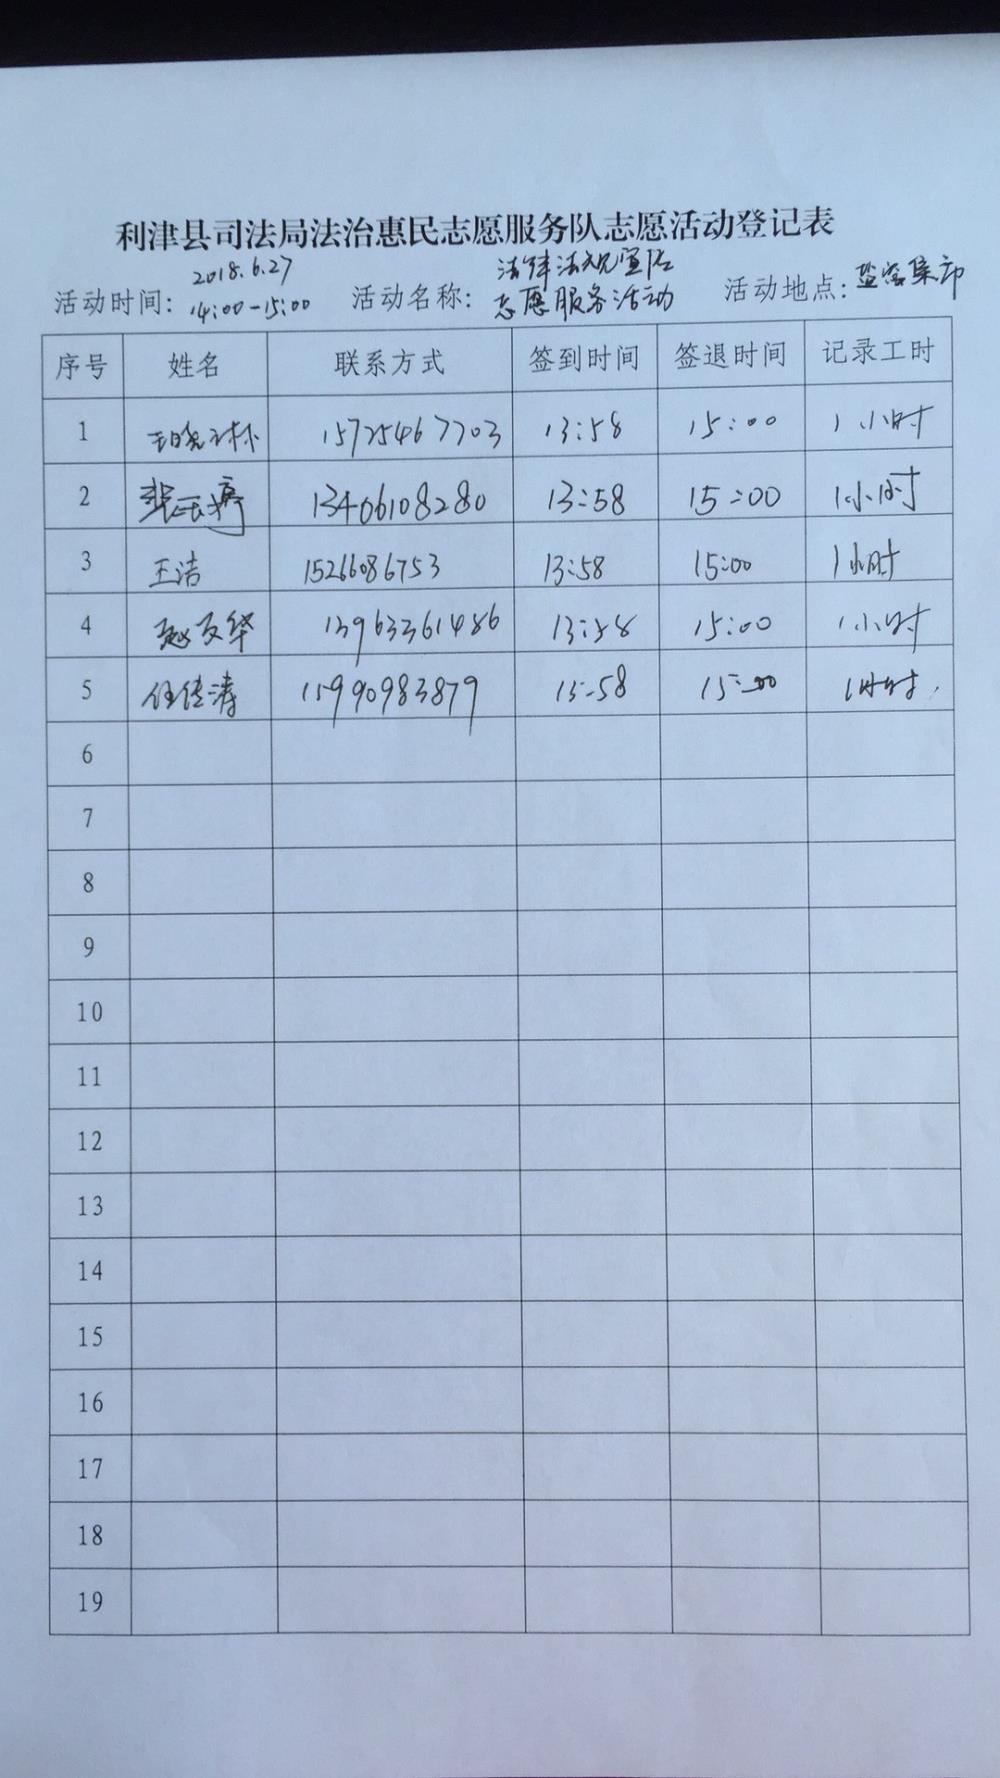 利津县司法局法治惠民志愿服务队志愿活动登记表
活动时间： 2018.6.27 14:00-15:00 活动名称： 法律法规宣传志愿服务活动 活动地点：盐窝集市
序号 姓名 联系方式 签到时间 签退时间 记录工时
1 15725467703 13:58 15:00 1小时
2 13406108280 13:58 15:00 1小时
3 王洁 15266086753 13:58 15:00 1小时
4 赵文华 13963361486 13:58 15:00 1小时
5 任传涛 15990983879 13:58 15:00 1小时
6
7
8
9
10
11
12
13
14
15
16
17
18
19